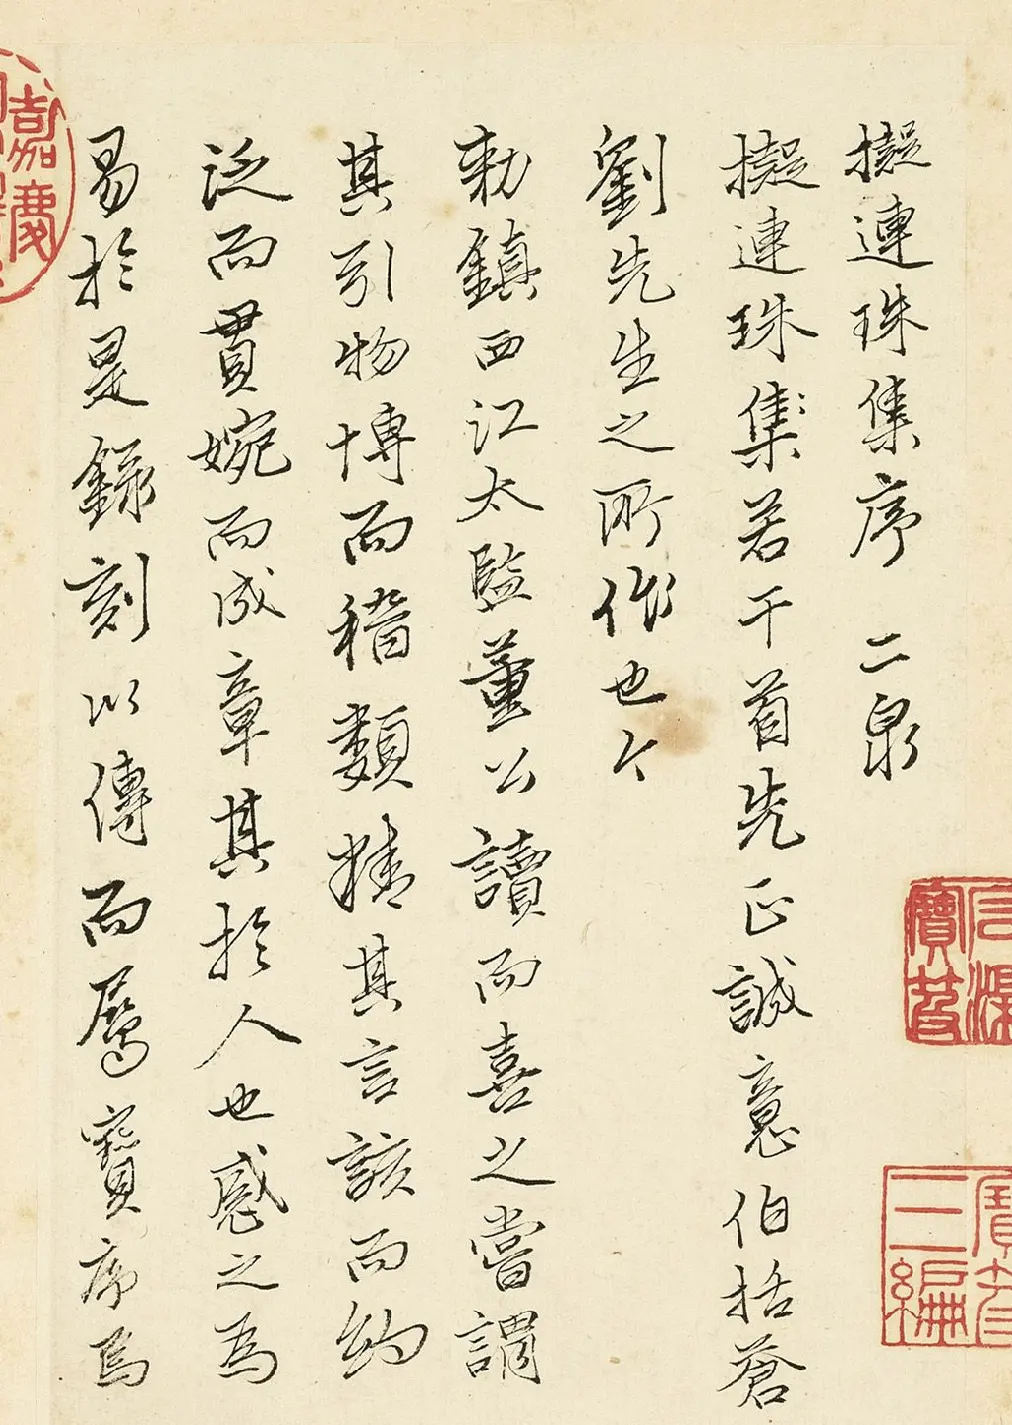 擬連珠集序 二泉
擬連珠集若干首先正誠意伯括蒼
劉先生之所作也今
勅鎮西江太監董公讀而喜之嘗謂
其引物博而稽類精其言該而約
泛而貫婉而成章其於人也感之為
易於是錄刻以傳而屬寶序焉
石渠寶笈
寶笈三編
嘉慶